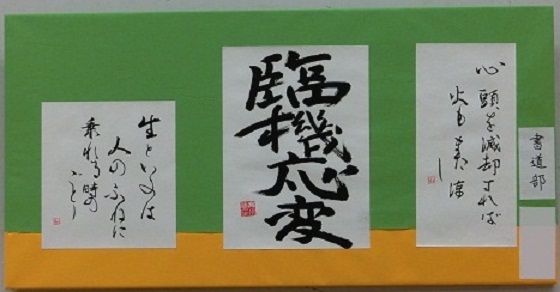 書道部
心頭を滅却すれば
火もまた涼
し
臨機応変
生といふは
人のふねに
乗れる時の
ごとし